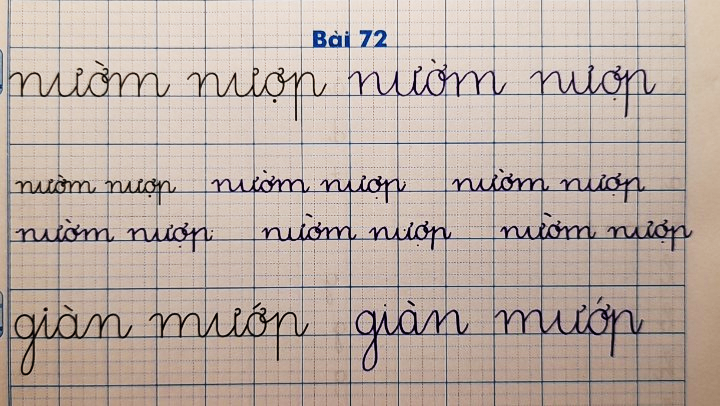 Bài 72
nườm nượp nườm nượp
nườm nượp nườm nượp nườm nượp
nườm nượp nườm nượp nườm nượp
giàn mướp giàn mướp